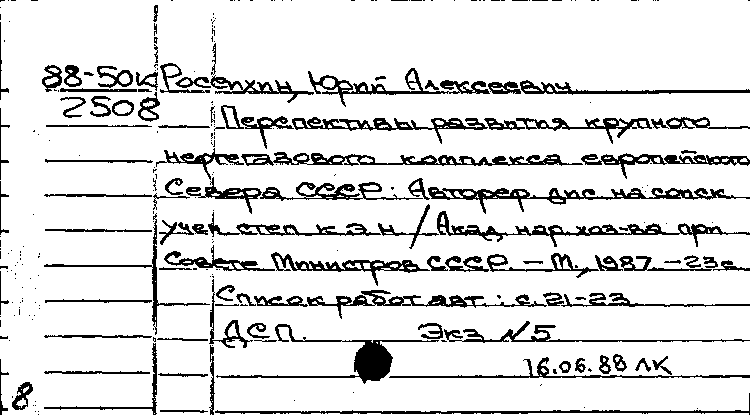 88-50к Росепхин, Юрий Алексеевич
2508
Перспективы развития крупного
нефтегазового комплекса европейского
Севера СССР: Автореф. дис. на соиск.
учен. степ. к. э. н. / Акад. нар. хоз-ва при
Совете Министров СССР. - М., 1987. - 23с.
Список работ авт.: с. 21-23
ДСП. Экз N 5
16.06.88 ЛК
8